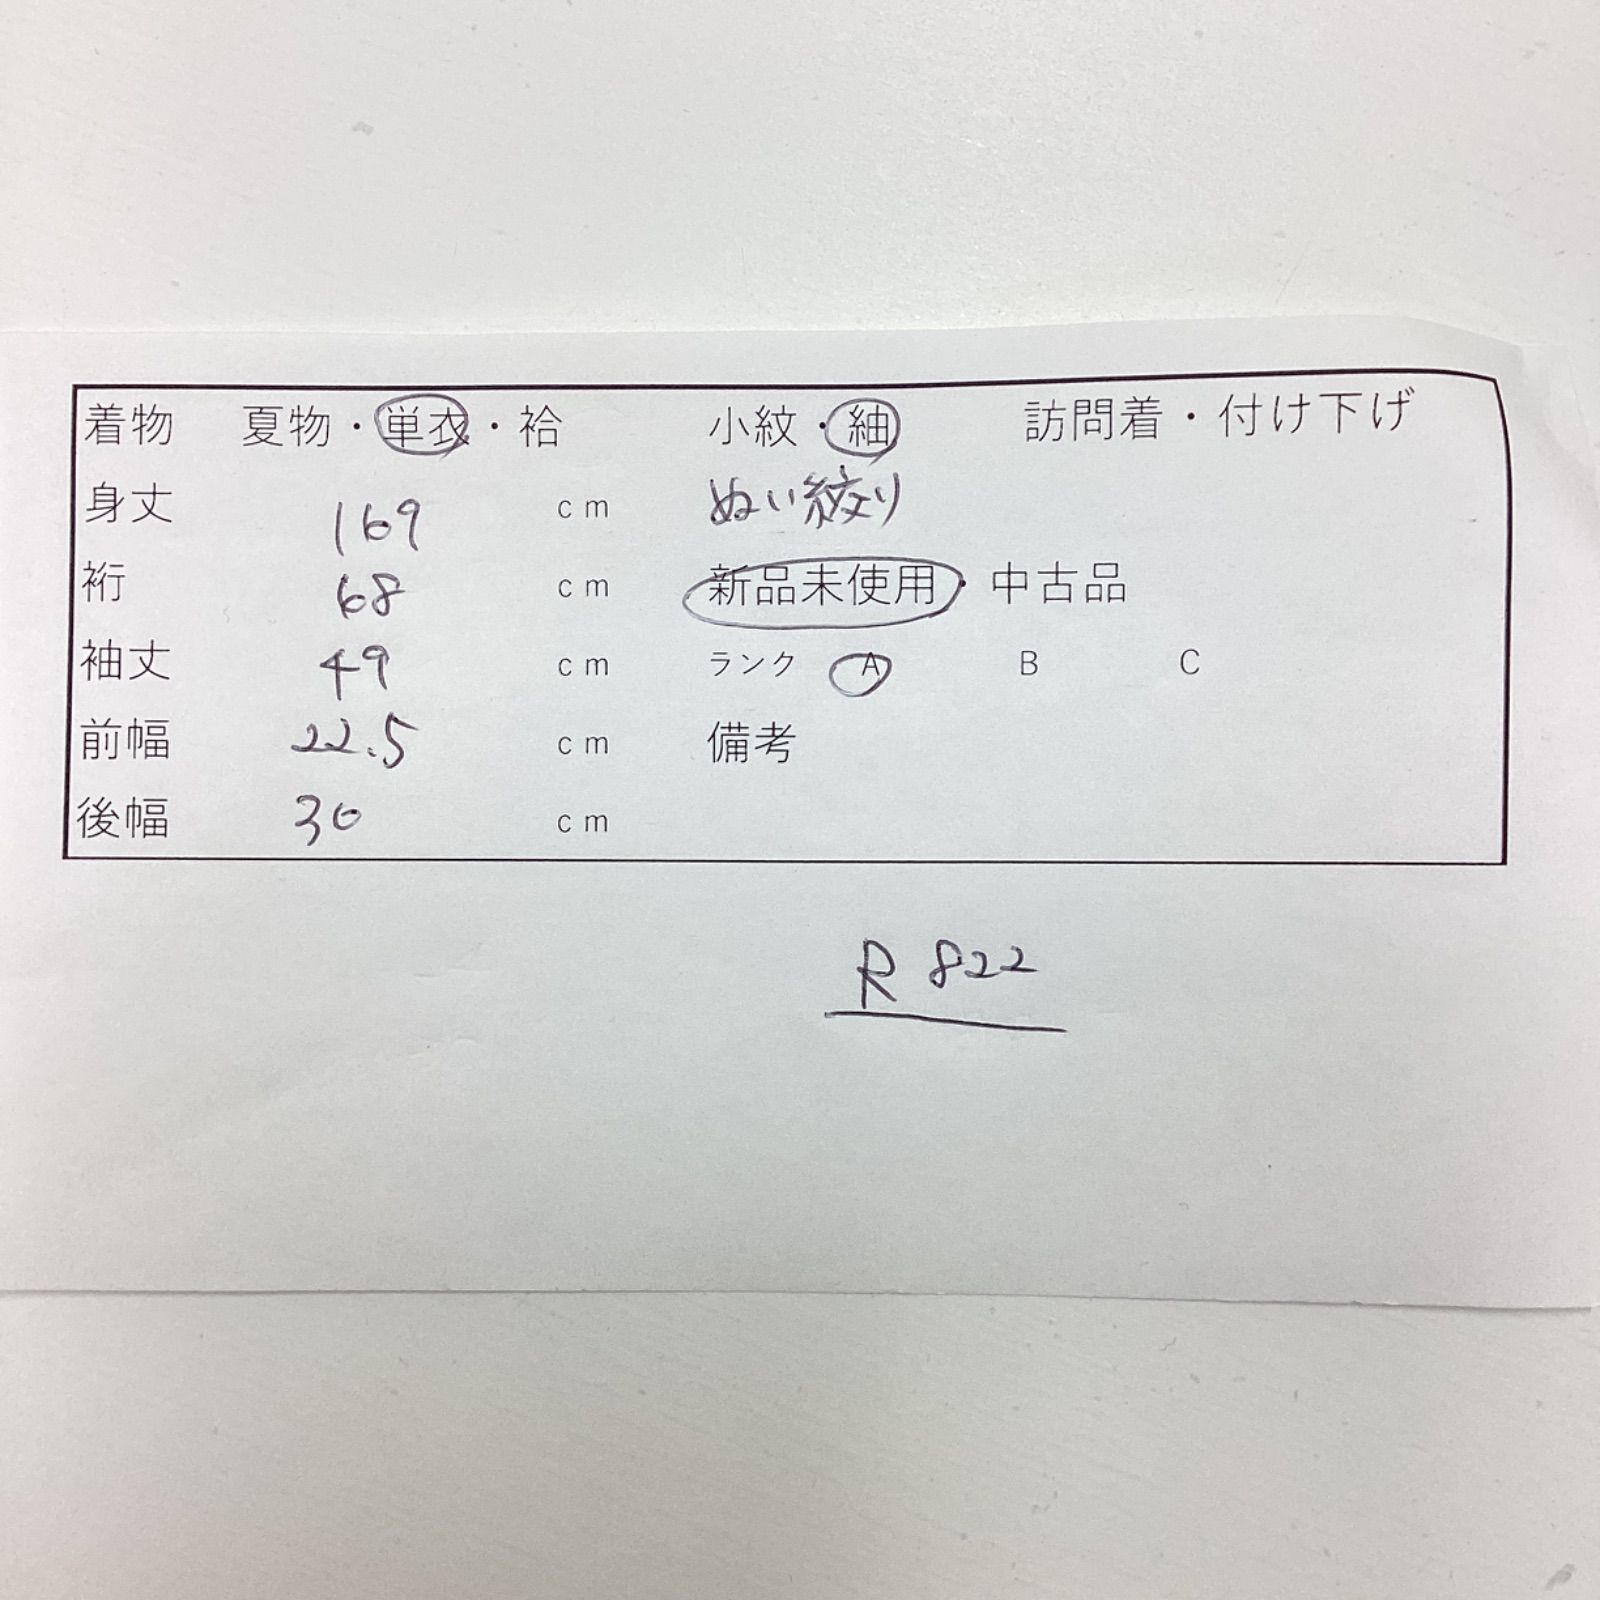 着物 夏物・単衣・袷 小紋・紬 訪問着・付け下げ
身丈 169 cm ぬい絞り
裄 68 cm 新品未使用・中古品
袖丈 49 cm ランク A B C
前幅 22.5 cm 備考
後幅 30 cm
R 822